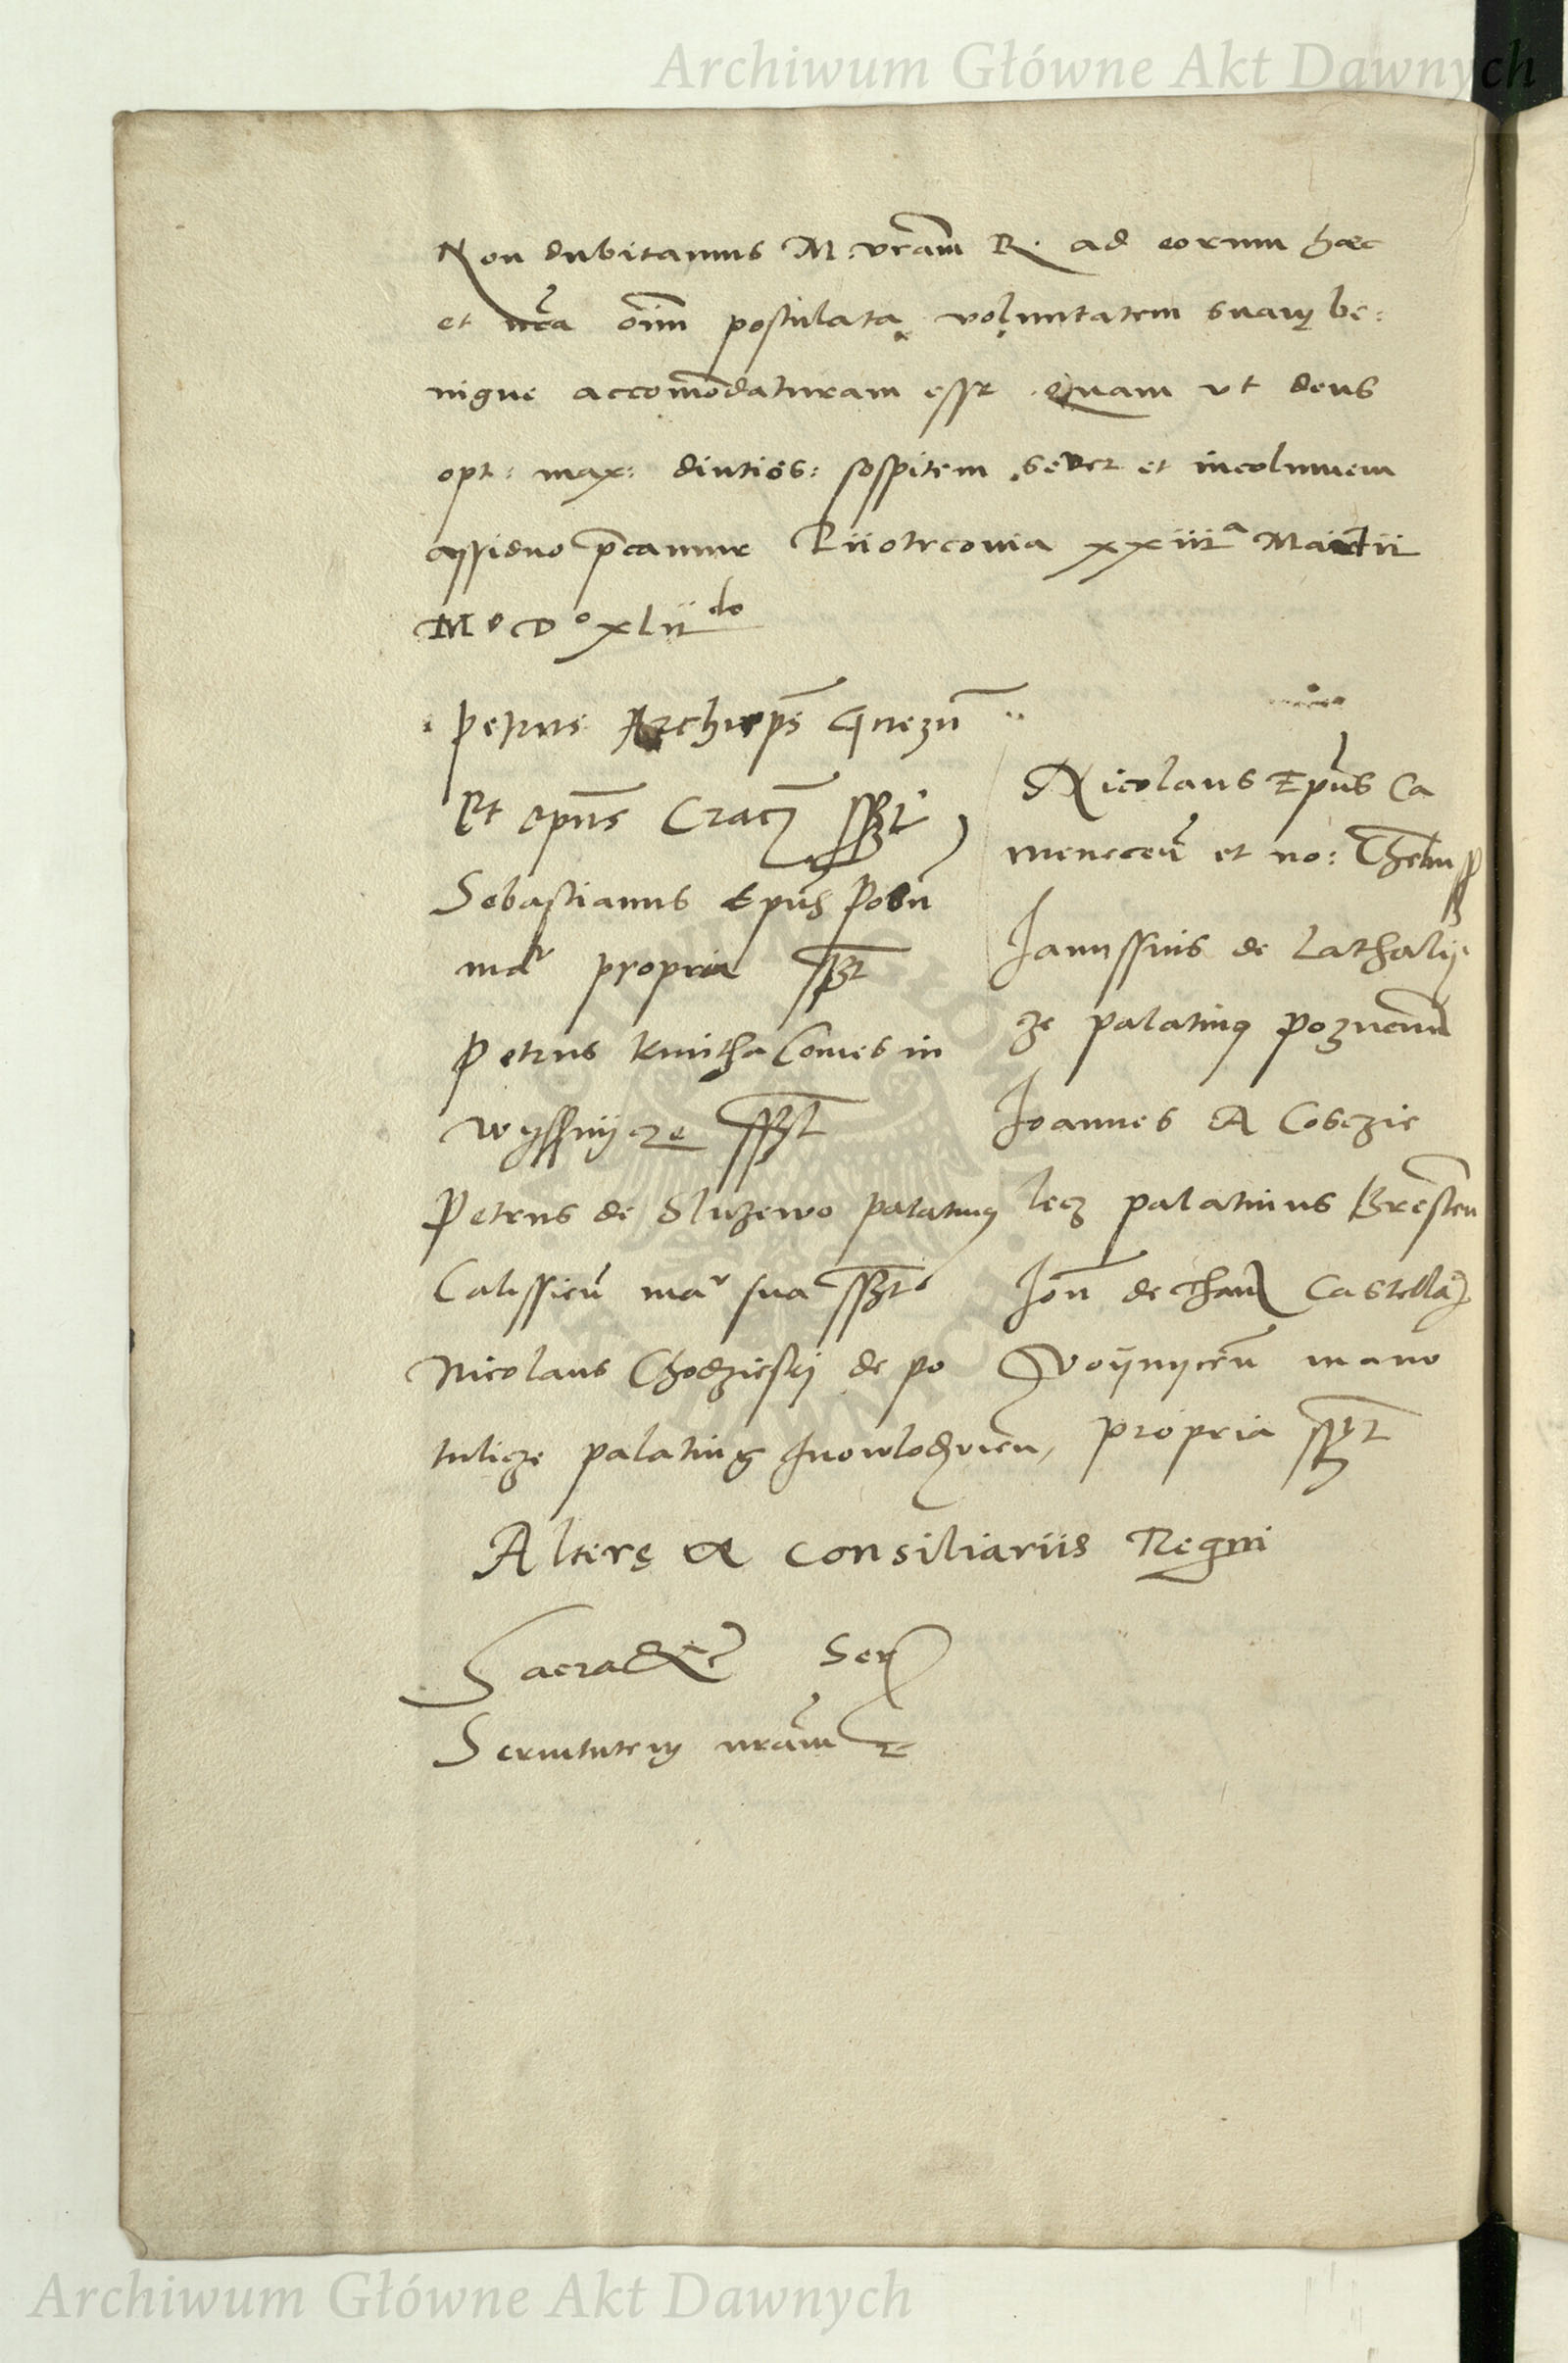 Archiwum Główne Akt Dawnych
Non dubitamus M: vr̄am R. ad eorum haec
et nr̄a oīm postulata voluntatem suam be:
nigne accom̄odaturam esse. Quam ut deus
opt: max: diutiss: sospitem servet et incolumem
assiduo p̄camur Piiotrcovia xxiiii ᵃ Martii
Mº Dº xlii ᵈᵒ
Petrus Archiep̄s Gnezn̄
Et ep̄us Crac̄ sszt
Sebastianus Ep̄us Posn̄
mā propria sszt
Petrus Kmitha Comes in
Wyssnijcze sszt
Petrus de Sluzewo palatinus
Calissien̄ mā sua sszt
Nicolaus Chodzieskj de po
tulicze palatinus Inowlodzvien,
Nicolaus Ep̄us Ca
menecen̄ et no: Chelm̄
Janussius de Lathalij
ze palatinus poznanien̄
Joannes A Cosczie
lecz palatinus Bresten̄
Jon̄ de Tharn Castella
Voijnycen̄ manu
propria sszt
Alterę a consiliariis Regni
Sacra &c Ser
Servitutem nr̄am &c
Archiwum Główne Akt Dawnych